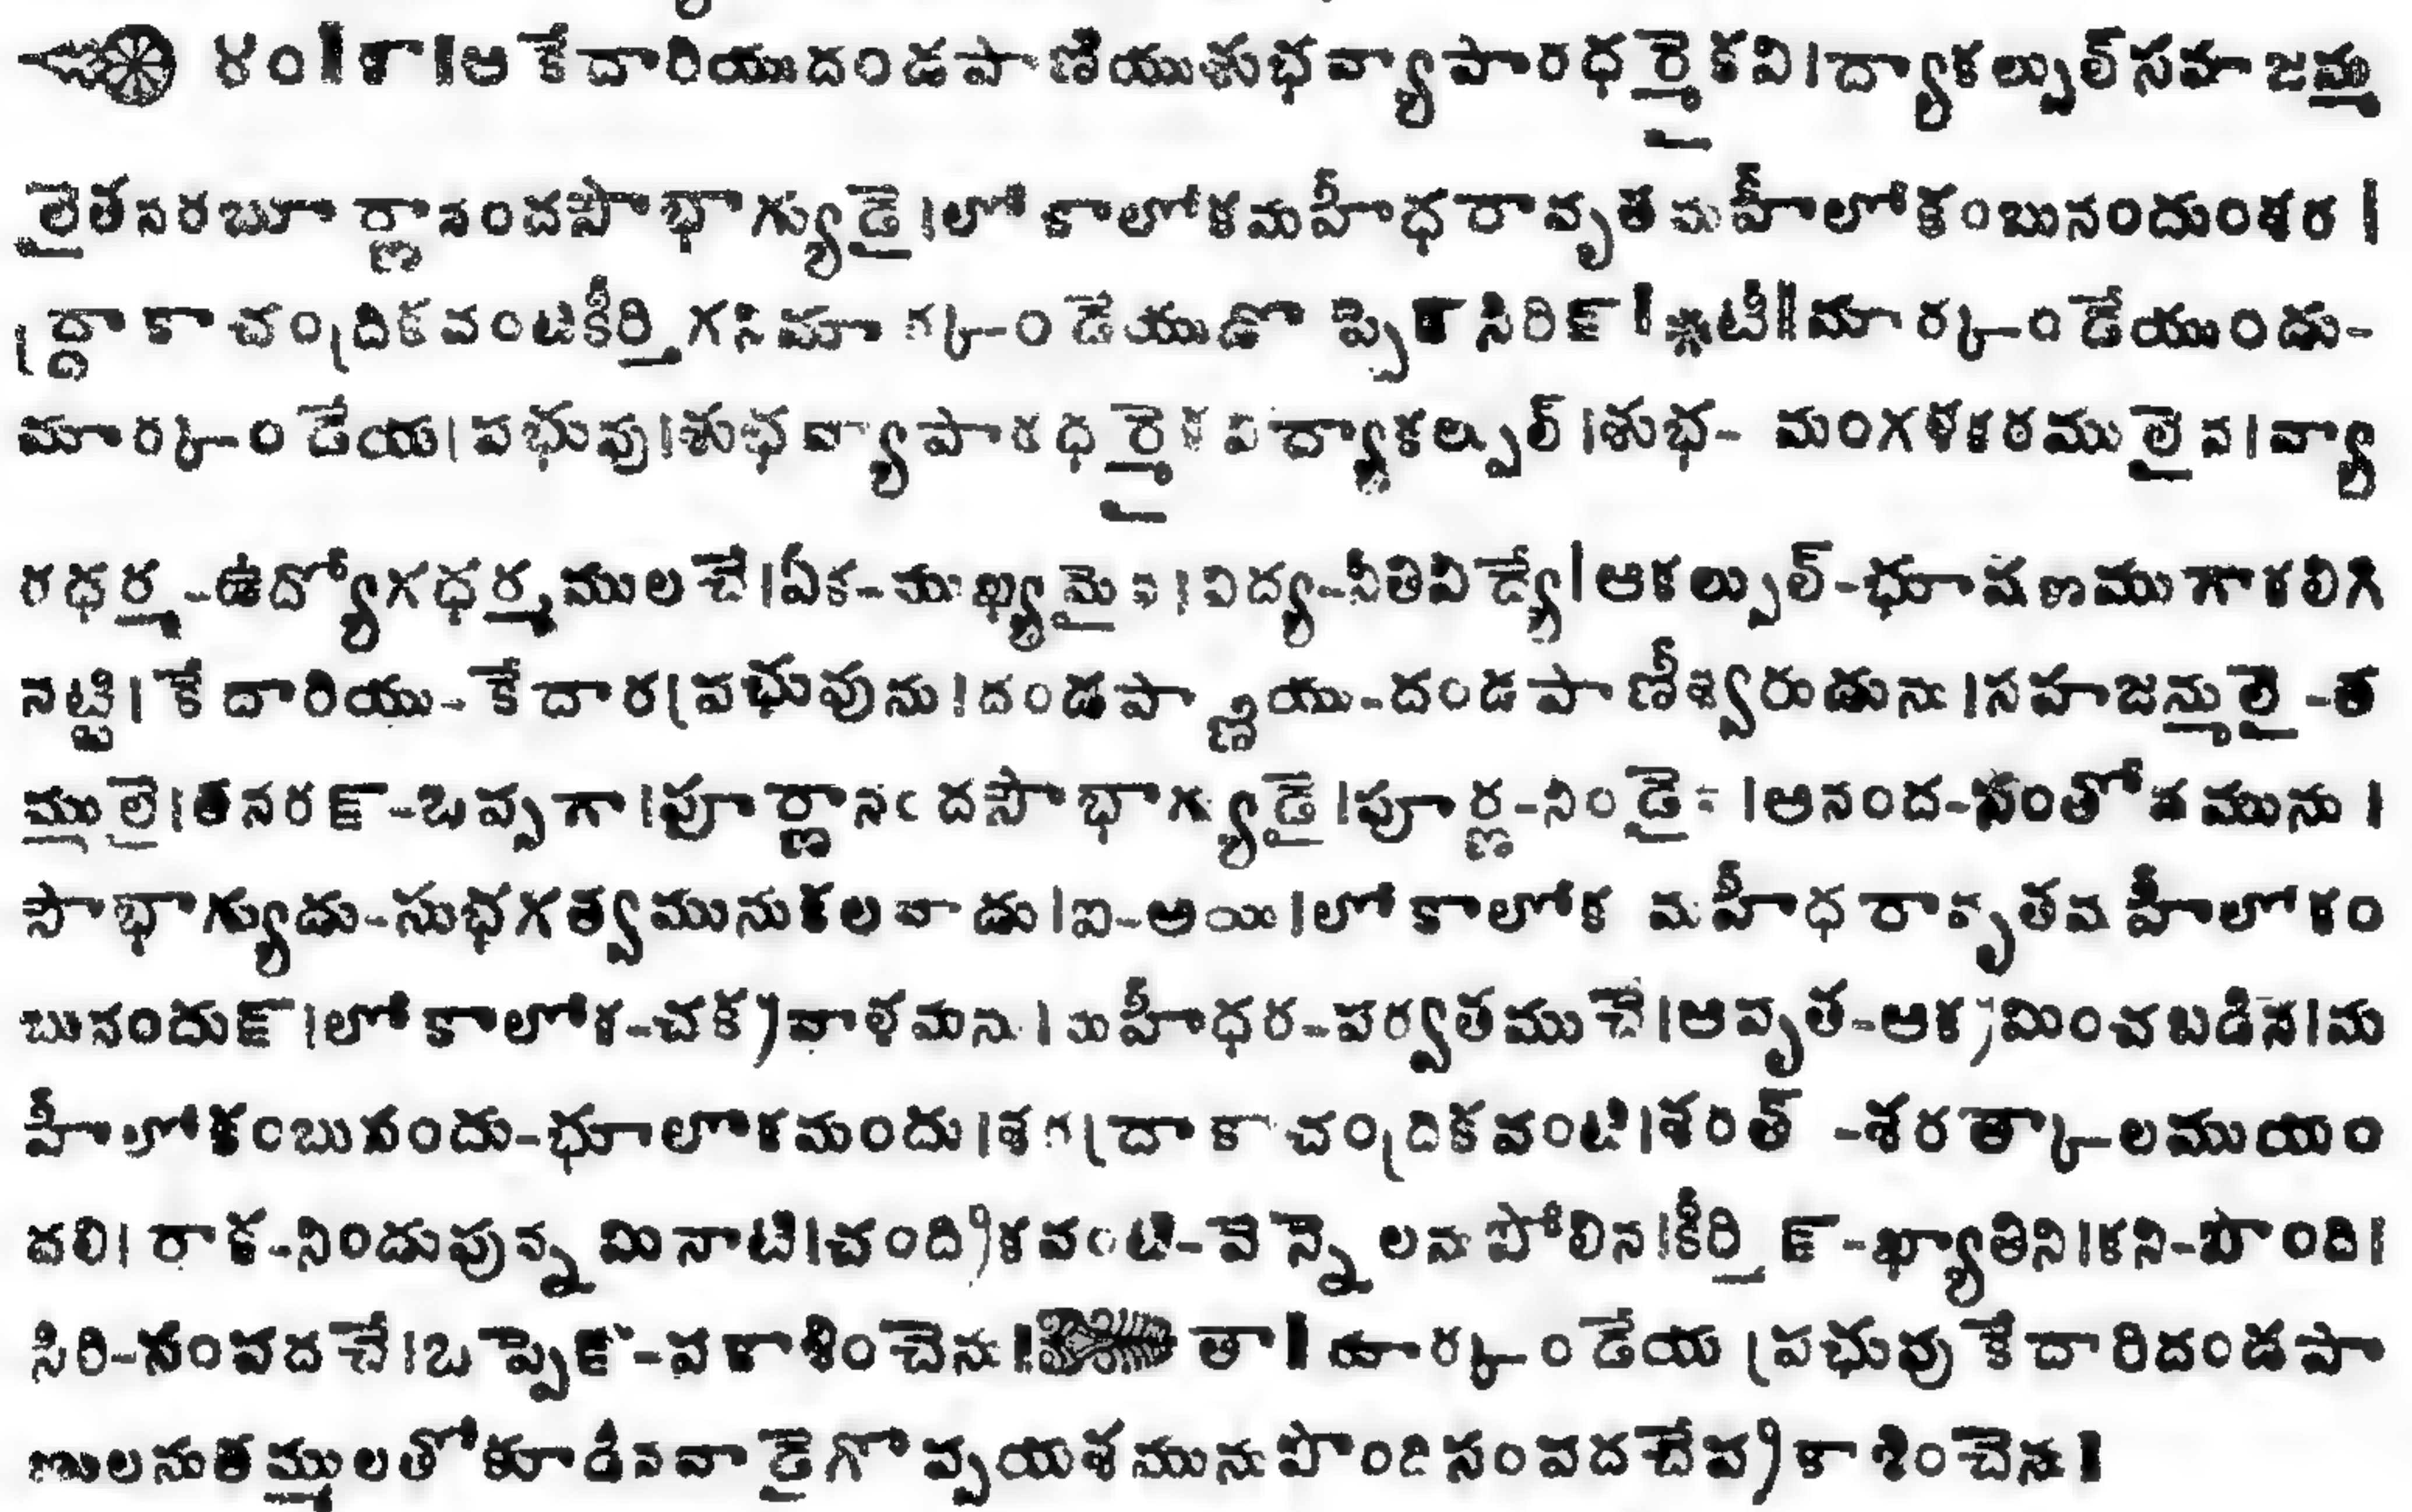 ౪ం।శా।ఆ కేదారియుదండపాణియుశుభవ్యాపారధర్మైకవి।ద్యాకల్పుల్‌సహజన్ము
లైతనరబూర్ణానందసౌభాగ్యుడై।లోకాలోకమహీధరావృతమహీలోకంబునందుంశర।
ద్రాకాచంద్రికవంటికీర్తిగనిమార్కండేయుడొప్పెన్‌సిరిన్‌।టీ॥మార్కండేయుందు-
మార్కండేయప్రభువు।శుభవ్యాపారధర్మైకవిద్యాకల్పుల్‌।శుభ- మంగళకరములైన।వ్యా
రధర్మ-ఉద్యోగధర్మములచే।ఏక-ముఖ్యమైన।విద్య-నీతివిద్యే।ఆకల్పుల్‌-భూషణముగాకలిగి
నట్టి।కేదారియు-కేదారప్రభువును।దండపాణ్ణియు-దండపాణీశ్వరుడును।సహజన్ములై-త
మ్ములై।తనరన్‌-ఒప్పగా।పూర్ణానందసౌభాగ్యుడై।పూర్ణ-నిండైన।ఆనంద-సంతోషమును।
సౌభాగ్యుడు-సుభగత్వమునుకలవాడు।ఐ-అయి।లోకాలోక మహీధరావృతమహీలోకం
బునందున్‌।లోకాలోక-చక్రవాళమను।మహీధర-పర్వతముచే।ఆవృత-ఆక్రమించబడిన।మ
హీలోకంబునందు-భూలోకమందు।శరద్రాకాచంద్రికవంటి।శరత్‌-శరత్కాలముయం
దలి।రాక-నిండుపున్నమినాటి।చంద్రికవంటి-వెన్నెలనుపోలిన।కీర్తిన్‌-ఖ్యాతిని।కని-పొంది।
సిరి-సంపదచే।ఒప్పెన్‌-ప్రకాశించెను। తా।మార్కండేయ ప్రభువుకేదారిదండపా
ణులనుతమ్ములతోకూడినవాడైగొప్పయశమునుపొందిసంపదచేప్రకాశించెను।